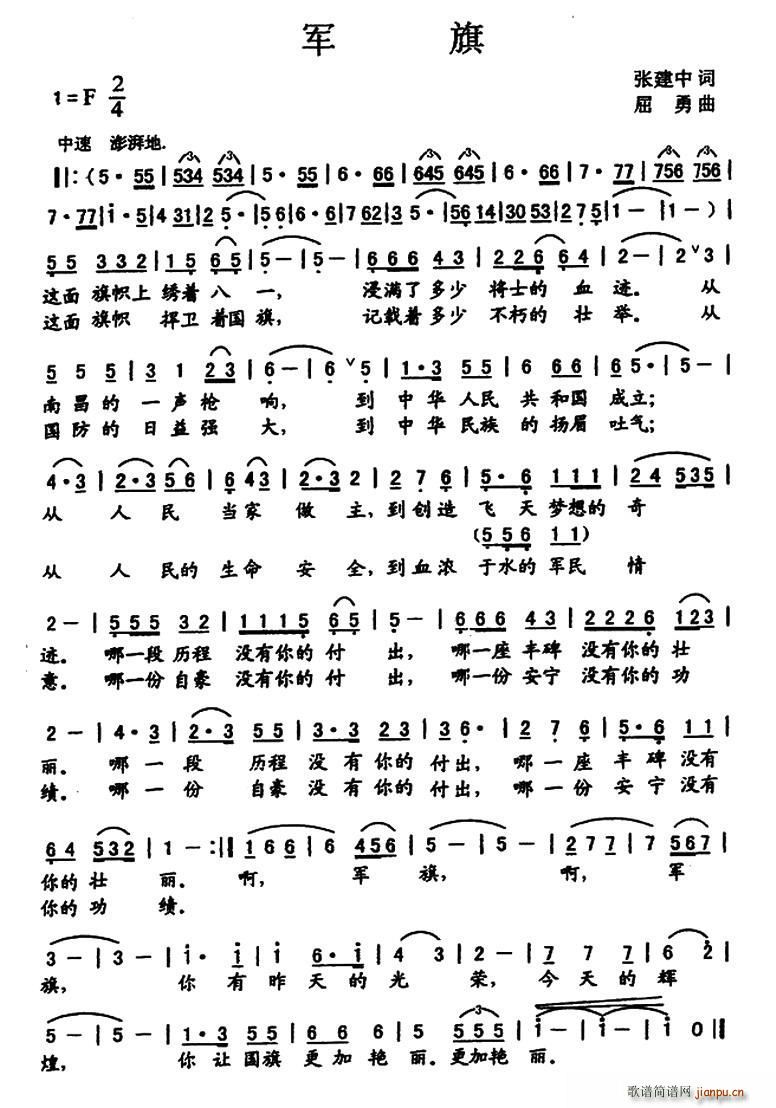 军 旗
1=F 2/4
张建中 词
屈 勇 曲
中速 澎湃地.
‖:(5·55|534 534|5·55|5·55|6·66|645 645|6·66|7·77|756 756|
7·77|i·5|4 31|2 5·|56|6·7|7 62|3 5·|56 14|30 53|2 7 5|1-|1-)|
5 5 3 3 2|1 5 6 5|5-|5-|6 6 6 4 3|2 2 6 6 4|2-|2 ∨3|
这面 旗帜上 绣着 八 一, 浸满了多少 将士的 血 迹. 从
这面 旗帜 捍卫 着国 旗, 记载着多少 不朽的 壮 举. 从
5 5 5|3 1 2 3|6-|6 ∨5|1·3 5 5|6 6 6 6|6 5·|5-|
南昌的 一声枪 响, 到 中华 人民 共 和国 成立;
国防的 日益强 大, 到 中华 民族 的 扬眉 吐气;
4·3|2·3 5 6|6 4 3|2·3|2 7 6|5·6 1 1 1|2 4 5 3 5|
从 人 民 当家 做 主,到创造 飞 天 梦想的 奇
(5 5 6 1 1)
从 人 民的 生命 安 全,到血浓 于水的 军民 情
2-|5 5 5 3 2|1 1 1 5 6 5|5-|6 6 6 4 3|2 2 2 6 1 2 3|
迹. 哪一段 历程 没有你的 付 出, 哪一座 丰碑 没有你的 壮
意. 哪一份 自豪 没有你的 付 出, 哪一份 安宁 没有你的 功
2-|4·3|2·3 5 5|3·3 2 3|3 6·|2 7 6|5·6 1 1|
丽. 哪 一 段 历程 没 有 你的 付出, 哪 一座 丰 碑 没有
绩. 哪 一 份 自豪 没 有 你的 付出, 哪 一份 安 宁 没有
6 4 5 3 2|1-:‖1 6 6|6|4 5 6|5-|5-|2 7 7|7 5 6 7|
你的 壮 丽. 啊, 军 旗, 啊, 军
你的 功 绩.
3-|3-|i· i|i i 6·i|4 3|2-|7 7 7|6 2|
旗, 你 有 昨 天 的 光 荣, 今 天 的 辉
5-|5-|1·3 5 5|6 6 6 2|5 5 5 5|i-|i-|i 0‖
煌, 你 让 国旗 更加 艳 丽.更加艳 丽.
歌谱简谱网
jianpu.cn